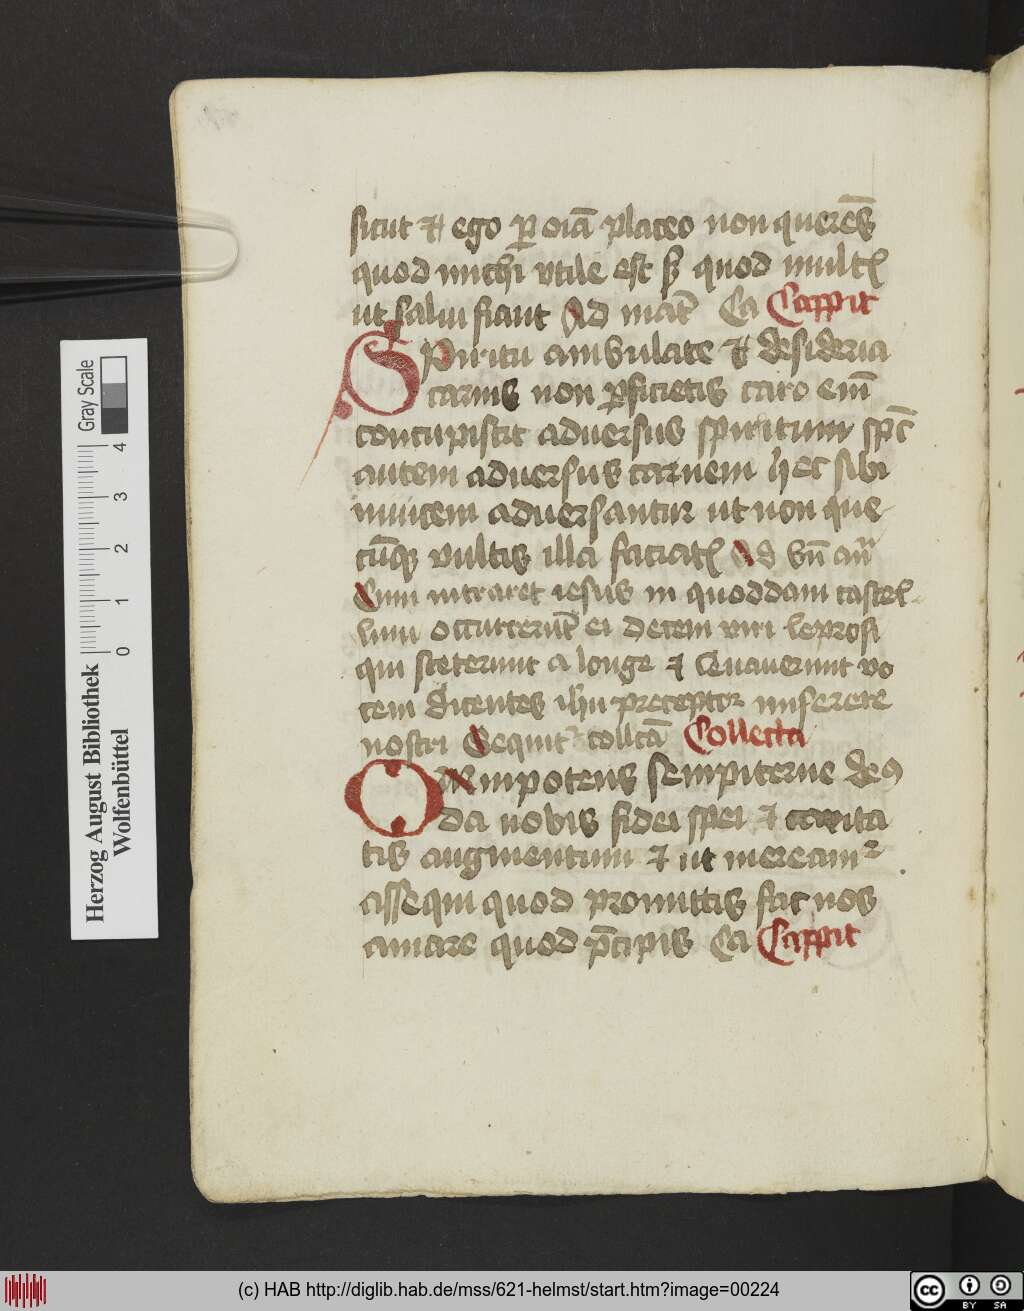 sicut ⁊ ego ꝑ oīa placeo non querēs
quod michi vtile est sꝫ quod multꝭ
ut salui fiant Ad mat̄ Ca Cappit
Spiritu ambulate ⁊ desideria
carnis non ꝑficietis caro em̄
concupiscit aduersus spiritum sp̄c
autem aduersus carnem hec sibi
inuicem aduersantur ut non que
cūqꝫ vultis illa faciatꝭ Ad bn̄ an̄
Cum intraret iesus in quoddam castel
lum occurrerūt ei decem viri leprosi
qui steterunt a longe ⁊ leuauerunt vo
cem dicentes ihu preceptor miserere
nostri Sequit᷑ collcā Collecta
Omnipotens sempiterne deꝰ
da nobis fidei spei ⁊ carita
tis augmentum ⁊ ut mereamr
assequi quod promittis fac nos
amare quod p̄cipis Ca Cappit
Gray Scale
0 1 2 3 4
Herzog August Bibliothek
Wolfenbüttel
(c) HAB http://diglib.hab.de/mss/621-helmst/start.htm?image=00224
cc BY SA